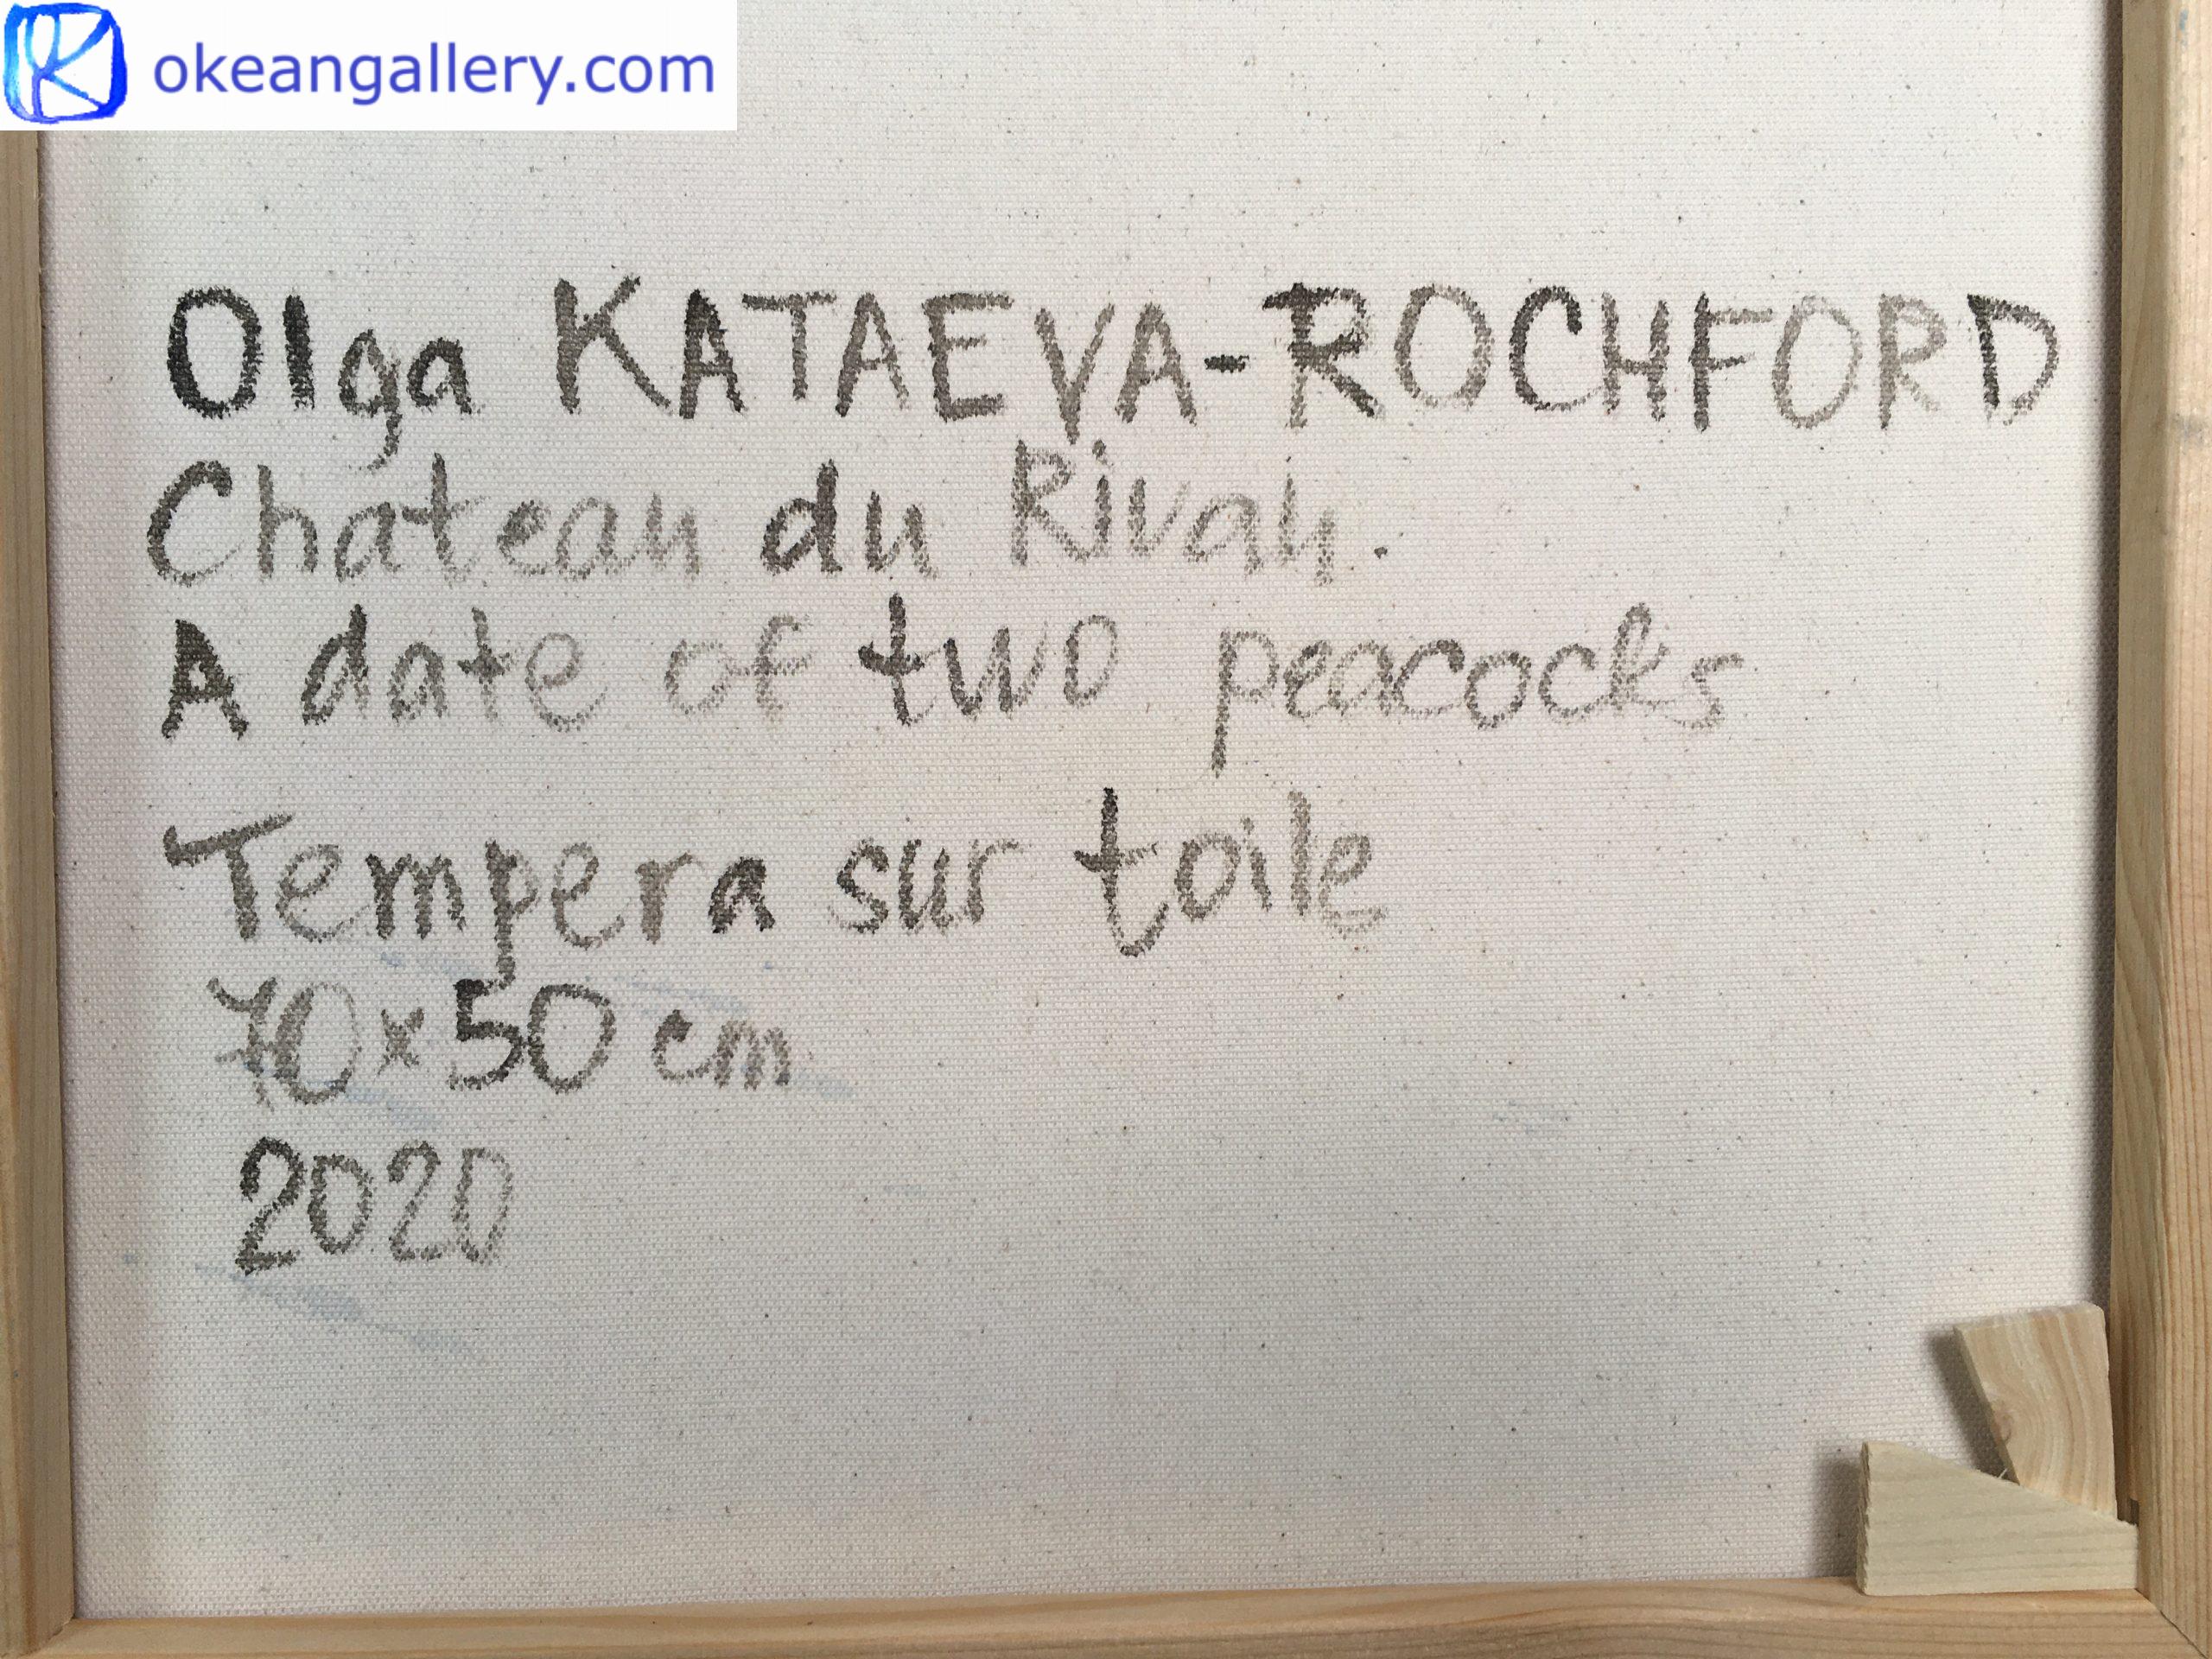 okeangallery.com
Olga KATAEVA-ROCHFORD
Chateau du Rivau.
A date of two peacocks
Tempera sur toile
70x50 cm
2020